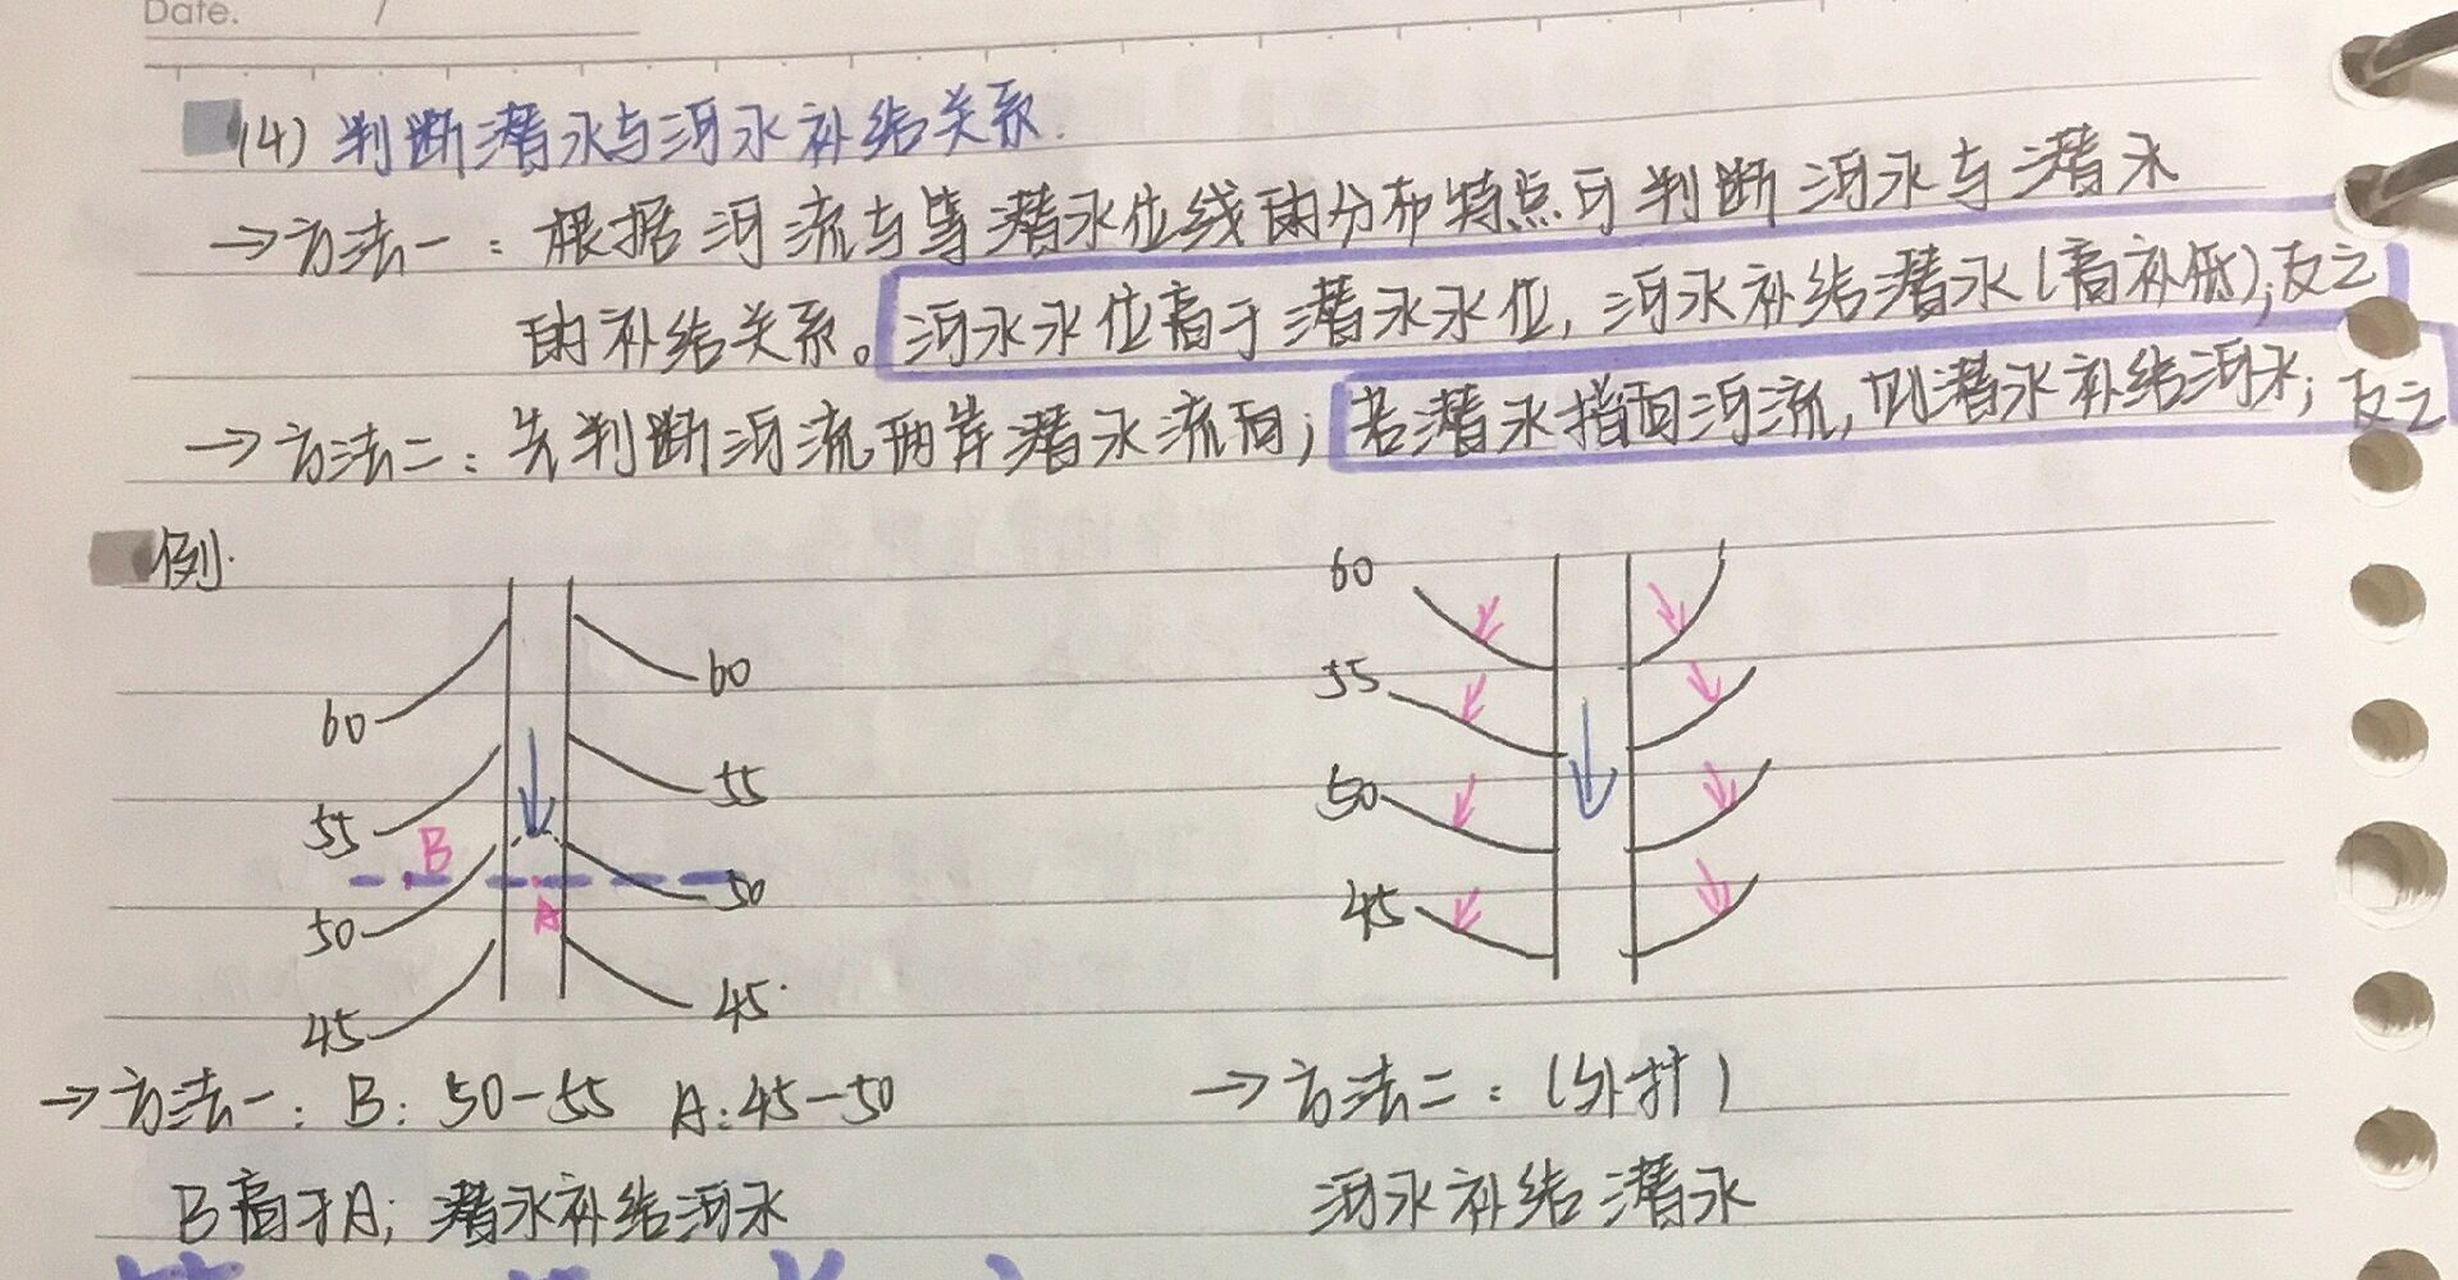 Date. /
(4) 判断潜水与河水补给关系.
→方法一：根据河流与等潜水位线的分布特点可判断河水与潜水
的补给关系。河水水位高于潜水水位，河水补给潜水（高补低）；反之
→方法二：先判断河流两岸潜水流向；若潜水指向河流，则潜水补给河水；反之
例.
60 60
55 55
B
50 50
A
45 45
60
55
50
45
→方法一：B：50-55 A：45-50
B高于A；潜水补给河水
→方法二：（外扩）
河水补给潜水